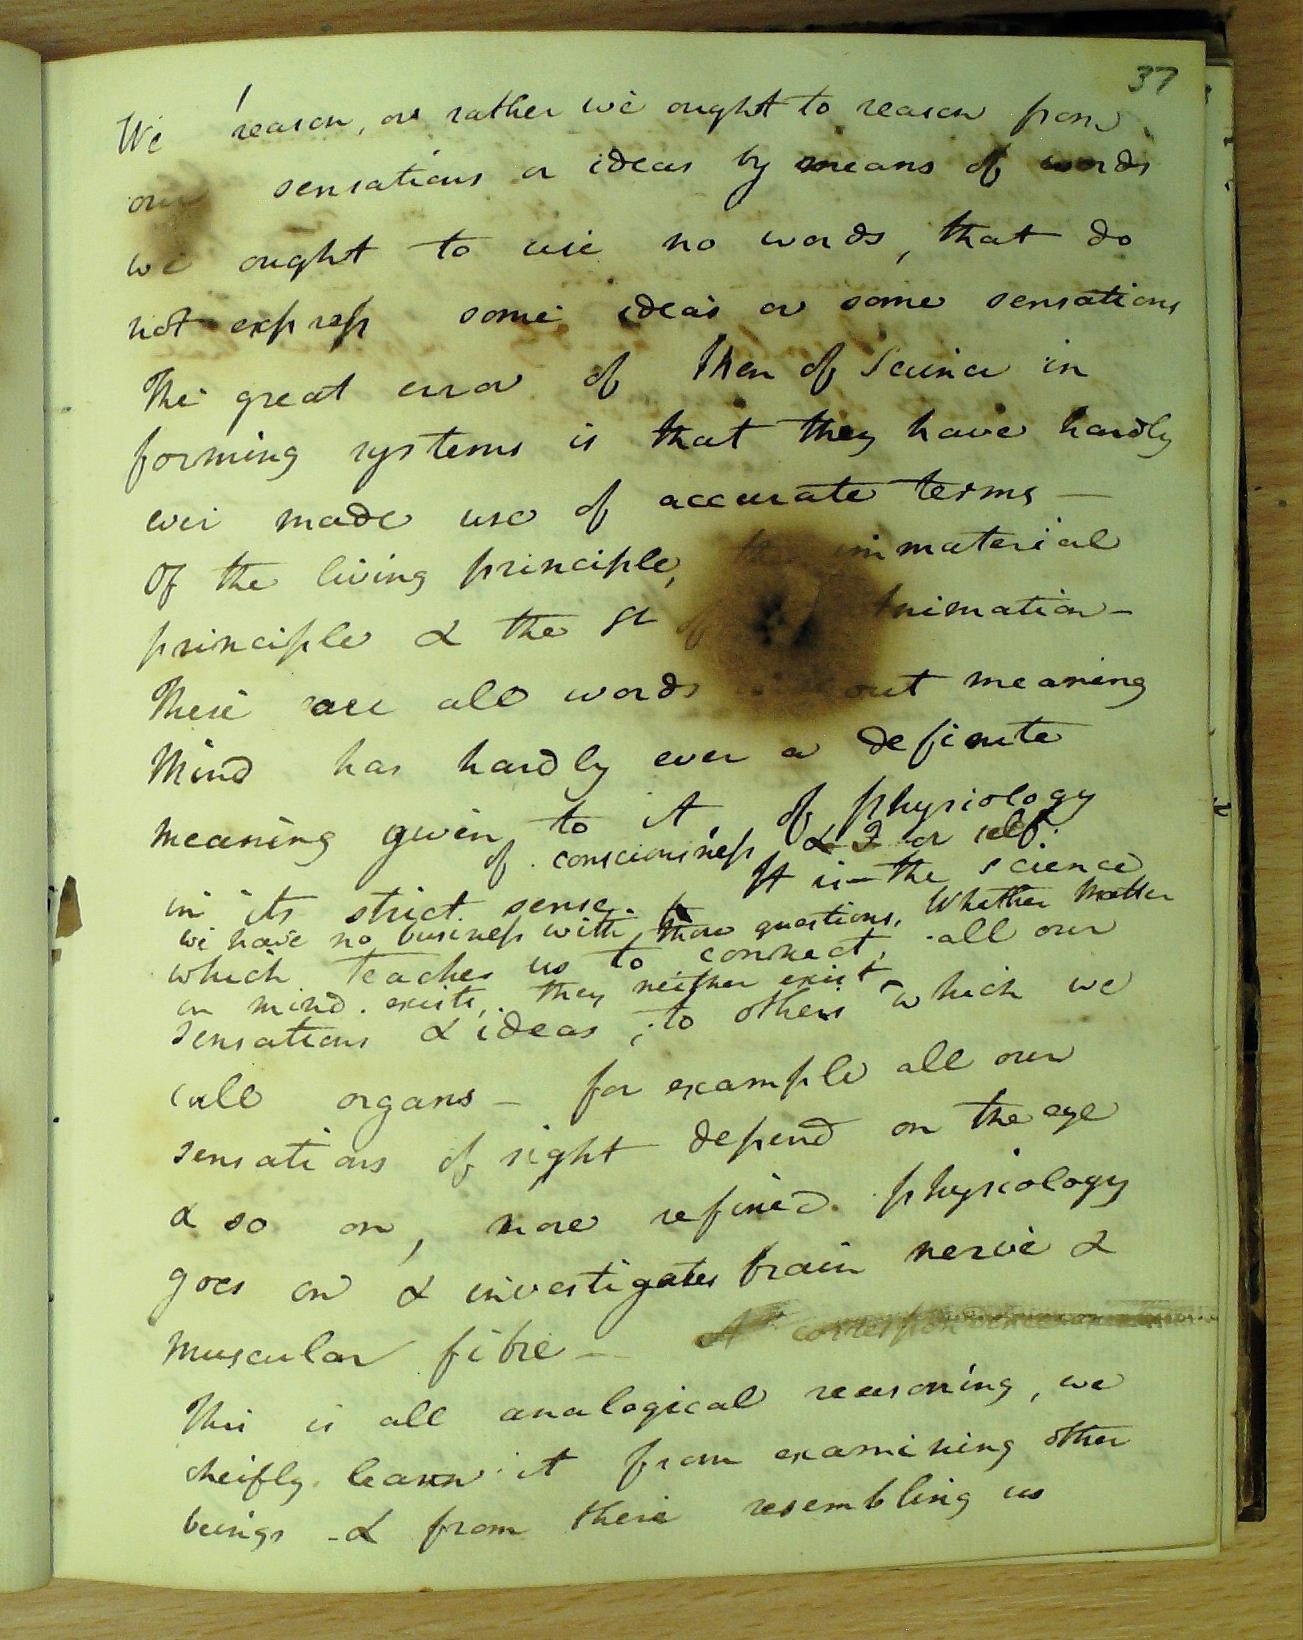 37
We reason, or rather we ought to reason from
our sensations or ideas by means of words
we ought to use no words, that do
not express some ideas or some sensations
The great error of Men of Science in
forming systems is that they have hardly
ever made use of accurate terms —
Of the living principle, the immaterial
principle & the st of Animation —
These are all words without meaning
Mind has hardly ever a definite
meaning given to it, of physiology
of consciousness, & I or self.
in its strict sense. It is the science
we have no business with those questions, Whether Matter
which teaches us to connect, all our
or mind exists, they neither exist
sensations & ideas ; to others which we
call organs — for example all our
sensations of sight depend on the eye
& so on, more refined physiology
goes on & investigates brain nerve &
muscular fibre —
This is all analogical reasoning, we
cheifly learn it from examining other
beings - & from their resembling us